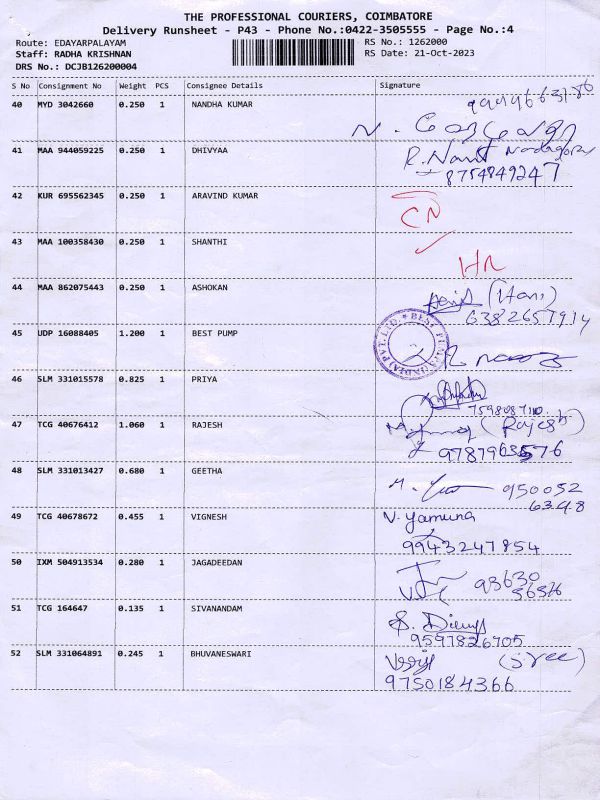 THE PROFESSIONAL COURIERS, COIMBATORE
Delivery Runsheet - P43 - Phone No.:0422-3505555 - Page No.:4
Route: EDAYARPALAYAM
RS No.: 1262000
Staff: RADHA KRISHNAN
RS Date: 21-Oct-2023
DRS No.: DCJB126200004
S No Consignment No Weight PCS Consignee Details Signature
40 MYD 3042660 0.250 1 NANDHA KUMAR
41 MAA 944059225 0.250 1 DHIVYAA
8754849247
42 KUR 695562345 0.250 1 ARAVIND KUMAR
CN
43 MAA 100358430 0.250 1 SHANTHI
HR
44 MAA 862075443 0.250 1 ASHOKAN
6382657914
45 UDP 16088405 1.200 1 BEST PUMP
46 SLM 331015578 0.825 1 PRIYA
47 TCG 40676412 1.060 1 RAJESH
(Rajesh)
9787963576
48 SLM 331013427 0.680 1 GEETHA
950052
6348
49 TCG 40678672 0.455 1 VIGNESH
V. Yamuna
9943247854
50 IXM 504913534 0.280 1 JAGADEEDAN
93630
51 TCG 164647 0.135 1 SIVANANDAM
9597826705
52 SLM 331064891 0.245 1 BHUVANESWARI
(sree)
9750184366